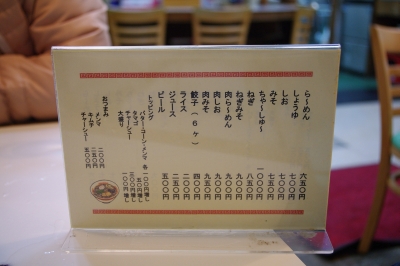 ら〜めん 六五〇
しょうゆ 七〇〇
しお 七〇〇
みそ 七五〇
ちゃ〜しゅ〜 一〇〇〇
ねぎ 八五〇
ねぎみそ 九〇〇
肉ら〜めん 九〇〇
肉しお 九〇〇
肉みそ 九五〇
餃子(6ヶ) 四〇〇
ライス 二五〇
ジュース 二五〇
ビール 五〇〇
トッピング
バター・コーン・メンマ 各 一〇〇円増し
タマゴ 五〇円増し
チャーシュー 三〇〇円増し
大盛り 一〇〇円増し
おつまみ
メンマ 二〇〇
キムチ 二五〇
チャーシュー 五〇〇